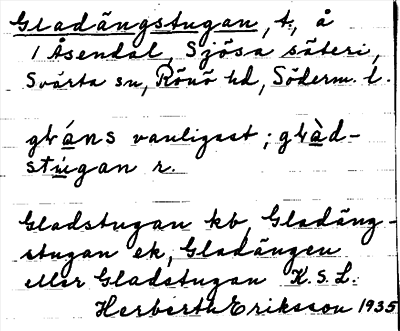 Gladängstugan, t., å
1 Åsendal, Sjösa säteri,
Svärta sn, Rönö hd, Söderm. l.
vanligast;
stúgan r.
Gladstugan kb, Gladäng-
stugan ek, Gladängen
eller Gladstugan K.S.L.
Herbert Eriksson 1935